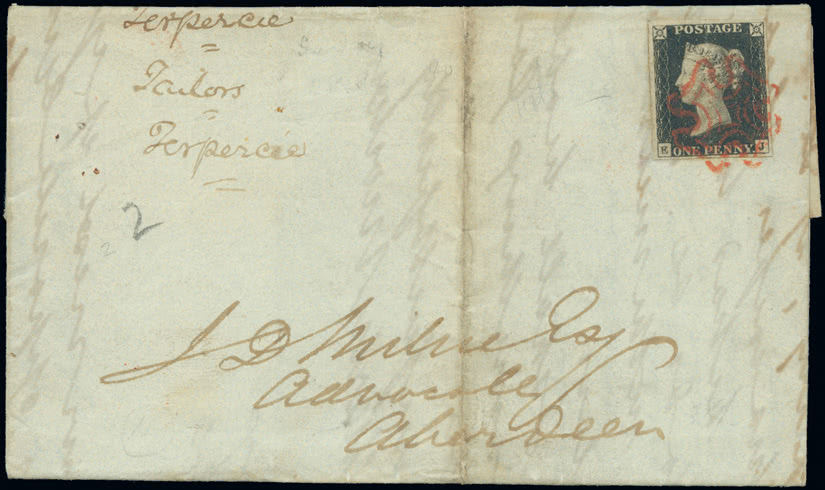 Terpercie
Tailors
Terpercie
2
2
POSTAGE
E ONE PENNY J
J D Milne Esq
Advocate
Aberdeen